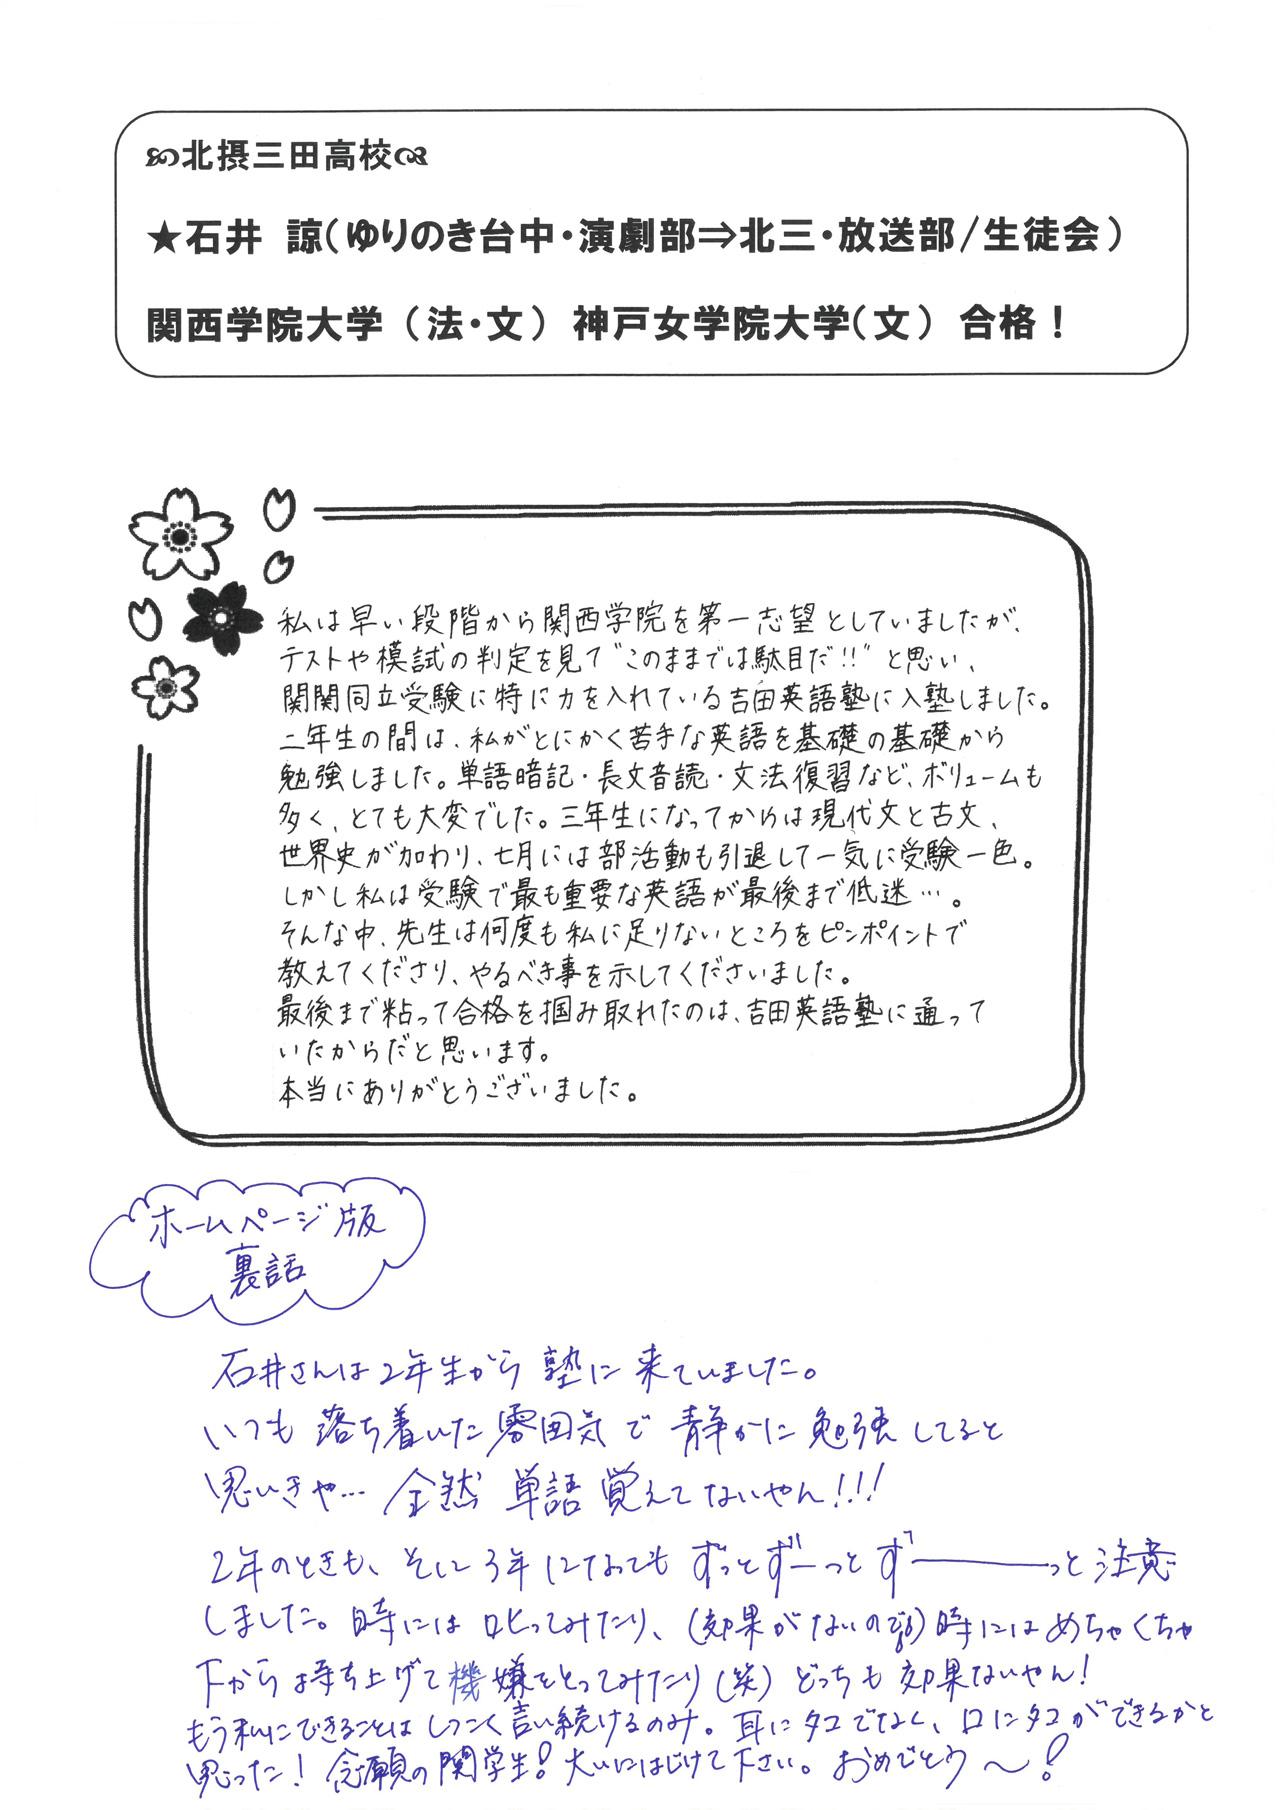 北摂三田高校
★石井 諒(ゆりのき台中・演劇部⇒北三・放送部/生徒会)
関西学院大学(法・文) 神戸女学院大学(文) 合格!
私は早い段階から関西学院を第一志望としていましたが、
テストや模試の判定を見て"このままでは駄目だ!!"と思い、
関関同立受験に特に力を入れている吉田英語塾に入塾しました。
二年生の間は、私がとにかく苦手な英語を基礎の基礎から
勉強しました。単語暗記・長文音読・文法復習など、ボリュームも
多く、とても大変でした。三年生になってからは現代文と古文、
世界史が加わり、七月には部活動も引退して一気に受験一色。
しかし私は受験で最も重要な英語が最後まで低迷…。
そんな中、先生は何度も私に足りないところをピンポイントで
教えてくださり、やるべき事を示してくださいました。
最後まで粘って合格を掴み取れたのは、吉田英語塾に通って
いたからだと思います。
本当にありがとうございました。
ホームページ版
裏話
石井さんは2年生から塾に来ていました。
いつも落ち着いた雰囲気で静かに勉強してると
思いきや… 全然単語覚えてないやん!!!
2年のときも、そして3年になってもずっとずーっとずーーーっと注意
しました。時には叱ってみたり、(効果がないので)時にはめちゃくちゃ
下から持ち上げて機嫌をとってみたり(笑)どっちも効果ないやん!
もう私にできることはしつこく言い続けるのみ。耳にタコでなく、口にタコができるかと
思った!念願の関学生!大いにはじけて下さい。おめでとう〜!